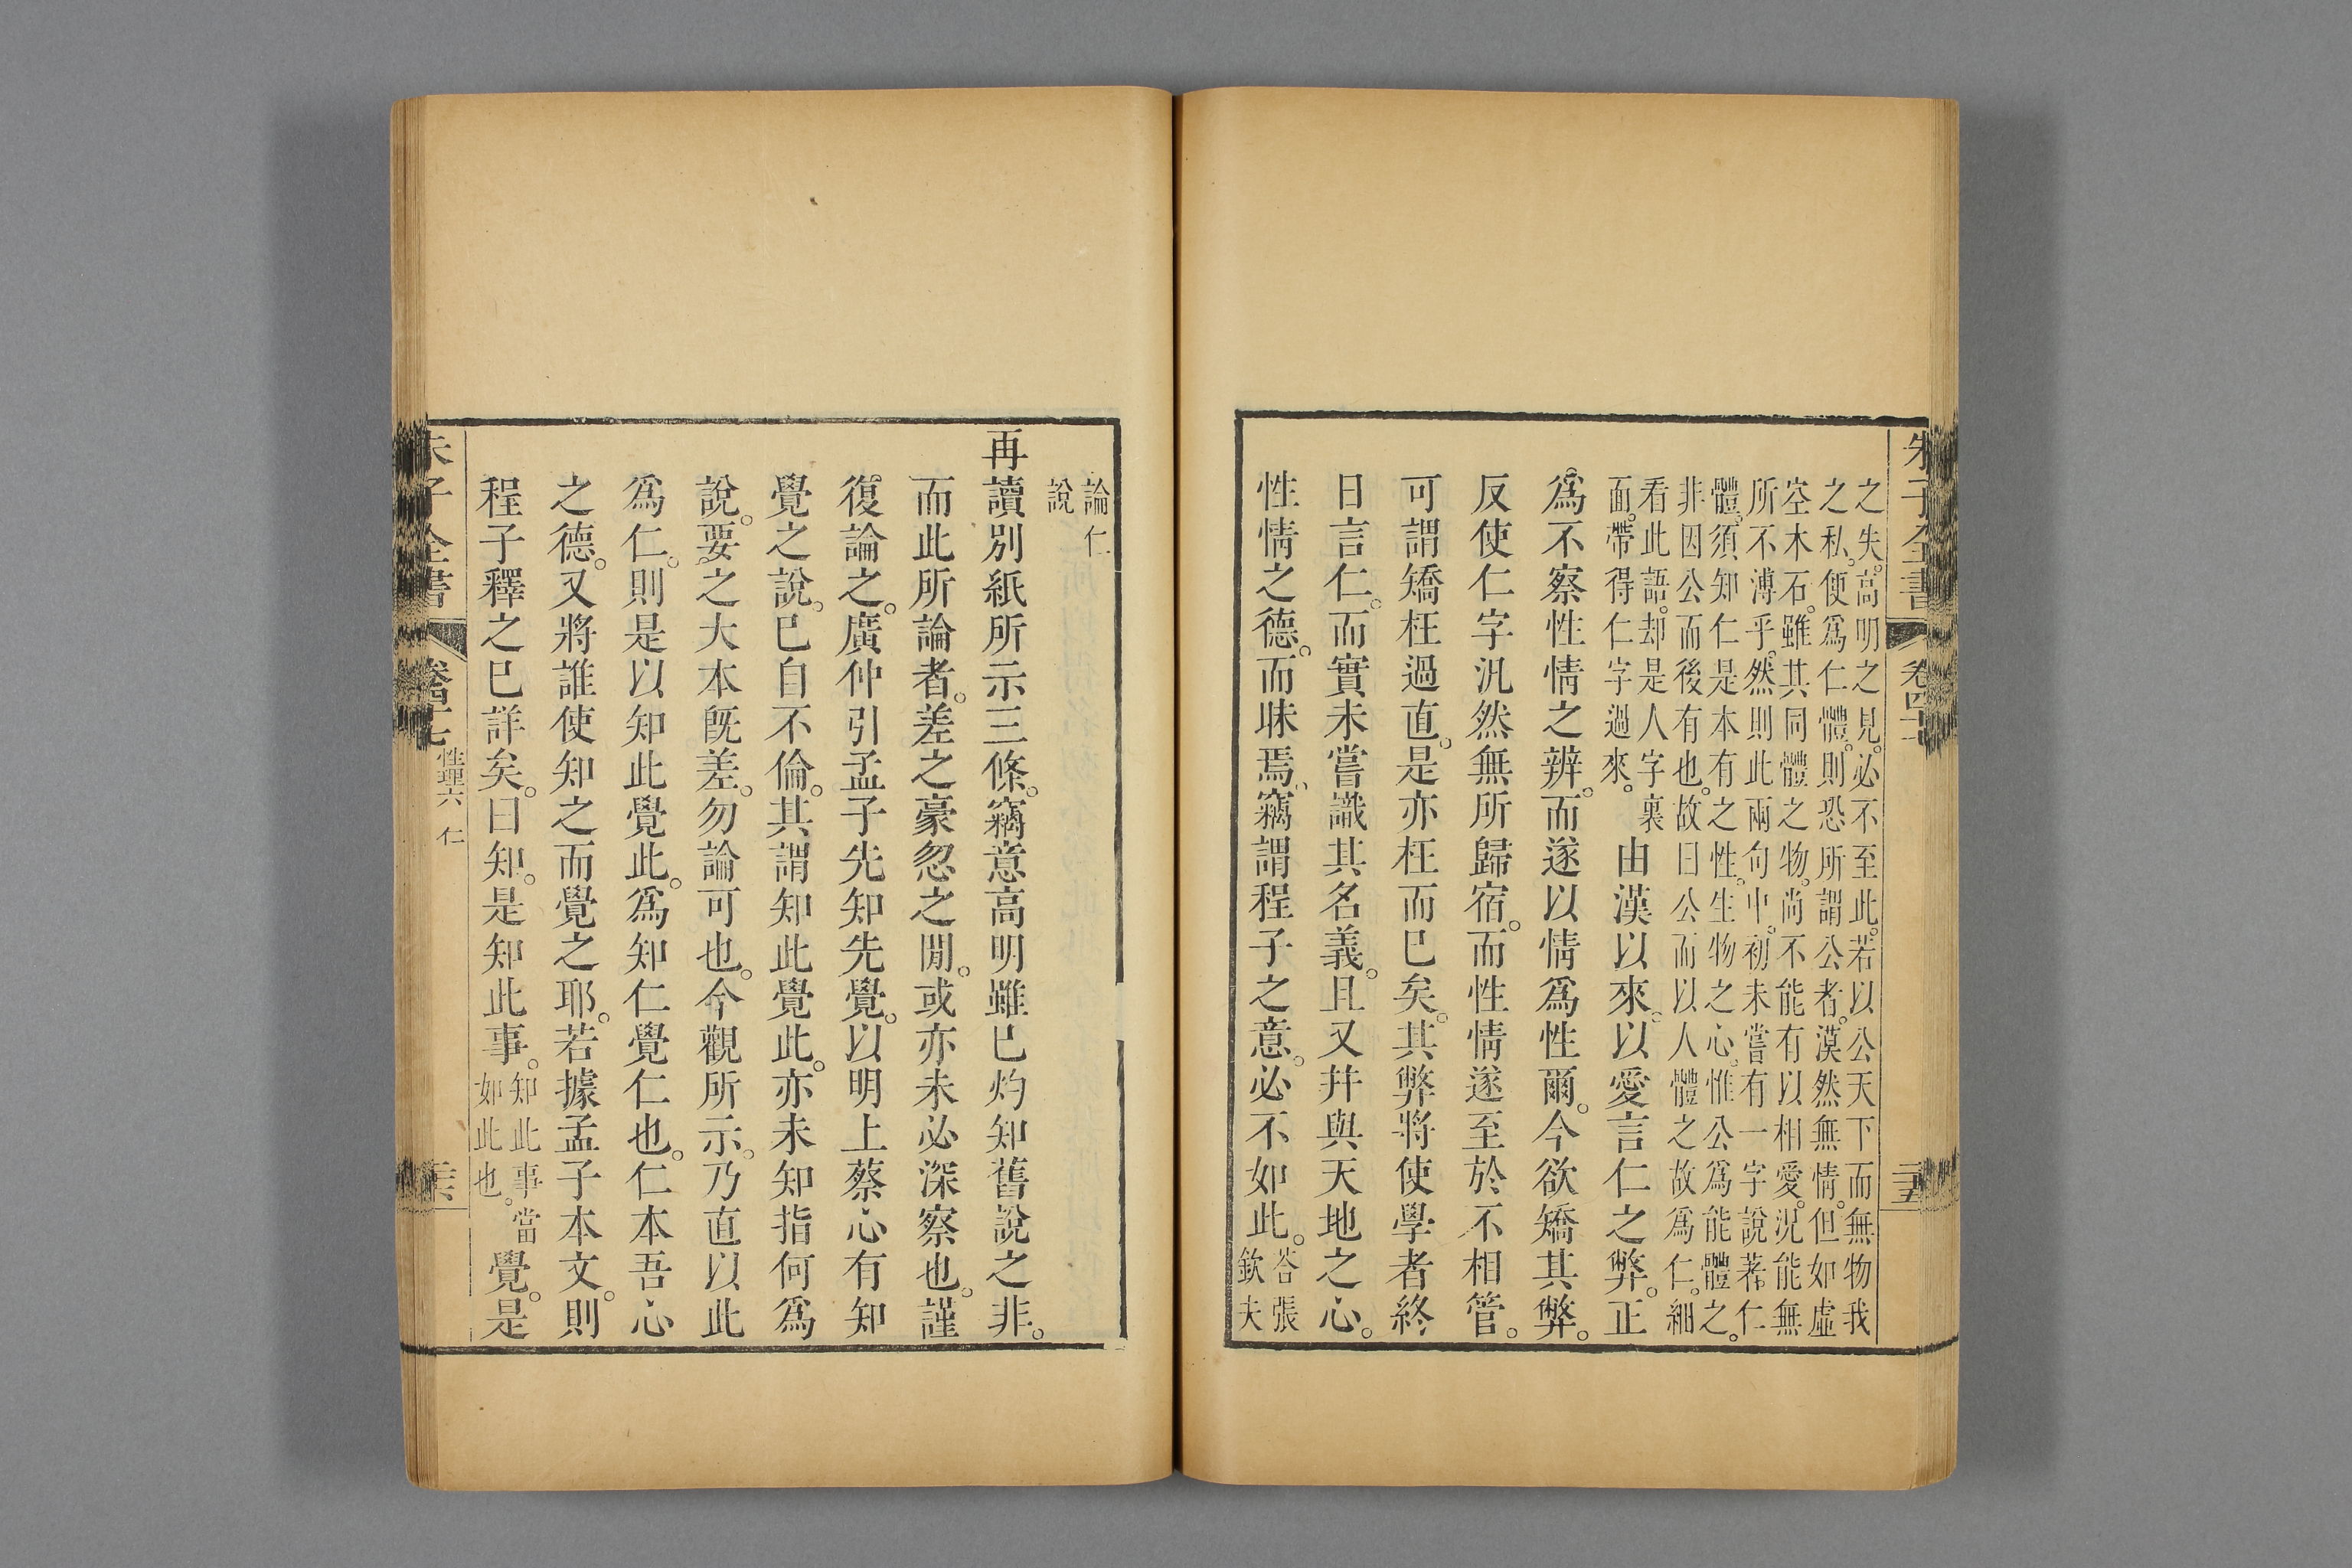 朱子全書 卷四十七 二十五
之失。高明之見。必不至此。若以公天下而無物我
之私。便爲仁體。則恐所謂公者。漠然無情。但如虛
空木石。雖其同體之物。尚不能有以相愛。況能無
所不溥乎。然則此兩句中。初未嘗有一字說著仁
體。須知仁是本有之性。生物之心。惟公爲能體之。
非因公而後有也。故曰公而以人體之故爲仁。細
看此語。却是人字裏
面。帶得仁字過來。
由漢以來。以愛言仁之弊。正
爲不察性情之辨。而遂以情爲性爾。今欲矯其弊。
反使仁字汎然無所歸宿。而性情遂至於不相管。
可謂矯枉過直。是亦枉而已矣。其弊將使學者終
日言仁。而實未嘗識其名義。且又并與天地之心。
性情之德。而昧焉。竊謂程子之意。必不如此。答張欽夫
論仁
說
再讀別紙所示三條。竊意高明雖已灼知舊說之非。
而此所論者。差之豪忽之閒。或亦未必深察也。謹
復論之。廣仲引孟子先知先覺。以明上蔡心有知
覺之說。已自不倫。其謂知此覺此。亦未知指何爲
說。要之大本旣差。勿論可也。今觀所示。乃直以此
爲仁。則是以知此覺此。爲知仁覺仁也。仁本吾心
之德。又將誰使知之而覺之耶。若據孟子本文。則
程子釋之已詳矣。曰知。是知此事。知此事當如此也。覺。是
朱子全書 卷四十七 性理六 仁